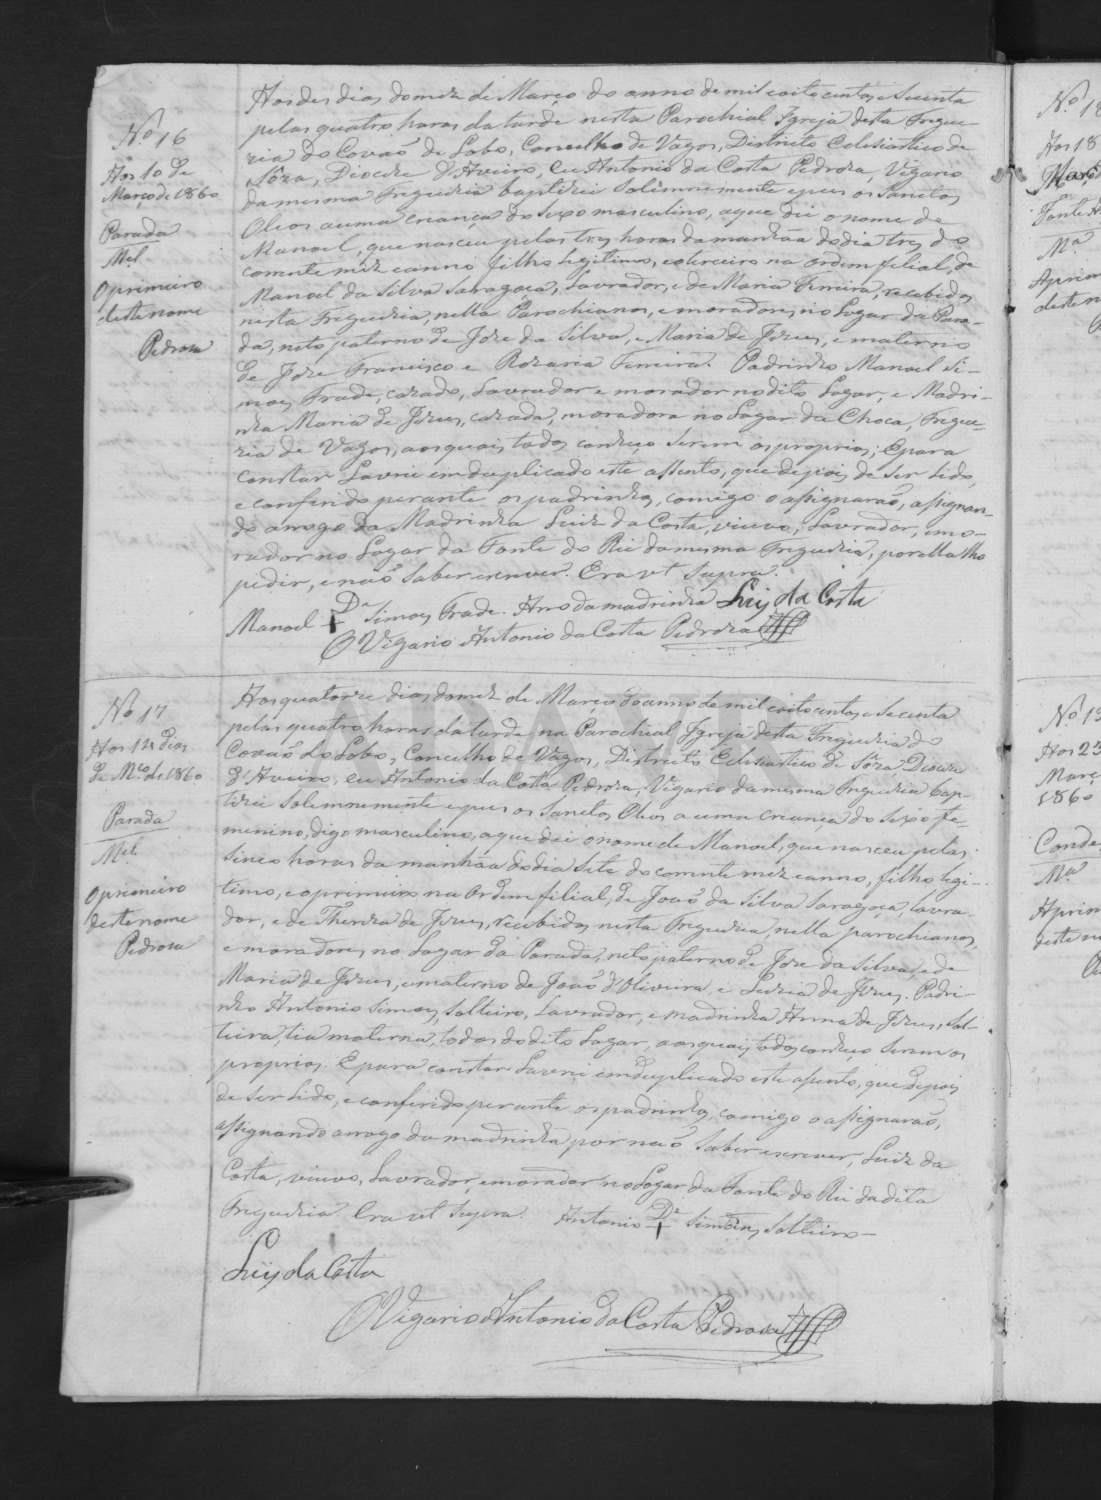 Nº 16
Aos 10 de
Março de 1860
Parada
Mel
O primeiro
deste nome
Pedrosa
Aos des dias do mez de Março do anno de mil oito centos e Secenta
pelas quatro horas da tarde nesta Parochial Igreja desta Fregue-
zia do Covaõ do Lobo, Concelho de Vagos, Districto Eclesiastico de
Sôza, Diocese d'Aveiro, eu Antonio da Costa Pedrosa, Vigario
da mesma Freguezia baptizei Solemnemente e puz os Sanctos
Oleos a uma criança do Sexo masculino, a que dei o nome de
Manoel, que nasceu pelas tres horas da manhãa do dia tres do
corrente mez e anno filho legitimo, e terceiro na ordem filial, de
Manoel da Silva Saragoça, Lavrador, e de Maria Ferreira, recebidos
nesta Freguezia, nella Parochianos, e moradores no Lugar da Para-
da, neto paterno de Joze da Silva, e Maria de Jezus, e materno
de Joze Francisco e Rozaria Ferreira. Padrinho Manoel Si-
moes Frade, cazado, Lavrador e morador no dito Lugar, e Madri-
nha Maria de Jezus, cazada, moradora no Lugar da Choca, Fregue-
zia de Vagos, aos quais todos conheço serem os proprios; E para
constar Lavrei em duplicado este assento, que depois de ser lido,
e conferido perante os padrinhos, comigo o assignaraõ, assignan-
do a rogo da Madrinha Luiz da Costa, viuvo, Lavrador, e mo-
rador no Lugar da Fonte do Rei da mesma Freguezia, por ella lho
pedir, e naõ saber escrever. Era ut supra.
Manoel De + Simoes Frade. Arro da madrinha Luis da Costa
O Vigario Antonio da Costa Pedroza
Nº 17
Aos 14 dias
de Mço de 1860
Parada
Mel
O primeiro
deste nome
Pedrosa
Aos quatorze dias do mez de Março do anno de mil oito centos e Secenta
pelas quatro horas da tarde na Parochial Igreja desta Freguezia do
Covaõ do Lobo, Concelho de Vagos, Districto Eclesiastico de Sôza, Diocese
d'Aveiro, eu Antonio da Costa Pedroza, Vigario da mesma Freguezia bap-
tizei Solemnemente e puz os Sanctos Oleos a uma criança do Sexo fe-
menino, digo masculino, a que dei o nome de Manoel, que nasceu pelas
sinco horas da manhãa do dia Sete do corrente mez e anno, filho legi-
timo, e o primeiro na Ordem filial, de Joaõ da Silva Saragoça, Lavra-
dor, e de Thereza de Jezus, recebidos nesta Freguezia, nella parochianos,
e moradores no Lugar da Parada, neto paterno de Joze da Silva, e de
Maria de Jezus, e materno de Joaõ d'Oliveira e Luzia de Jezus. Padri-
nho Antonio Simoes, Solteiro, Lavrador, e madrinha Anna de Jezus, Sol-
teira, tia materna, todos do dito Lugar, aos quais todos conheço serem os
proprios. E para constar Lavrei em duplicado este assento, que depois
de ser lido, e conferido perante os padrinhos, comigo o assignaraõ,
assignando a rogo da madrinha por naõ saber escrever, Luiz da
Costa, viuvo, Lavrador, e morador no Lugar da Fonte do Rei da dita
Freguezia. Era ut supra. Antonio De + Simões Solteiro
Luis da Costa
O Vigario Antonio da Costa Pedroza
ADAVR
Aos 18
Março
Nª
deste n
Aos 23
Março
1860
Conde
Mª
A prim
deste no